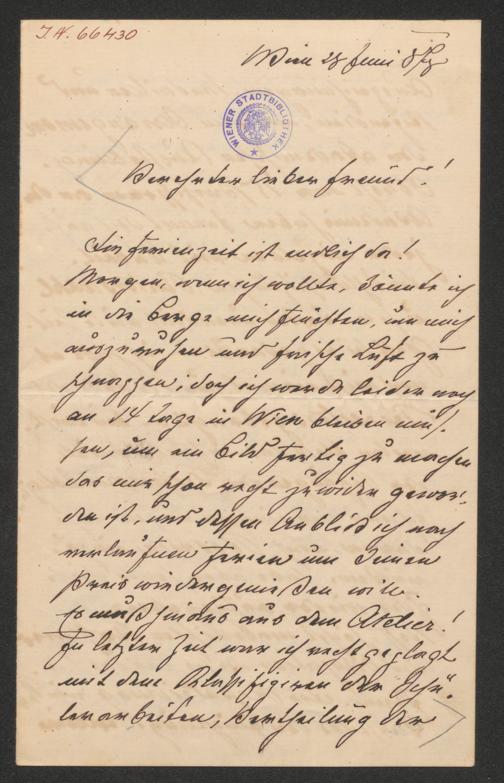 J.N. 66430
Wien 28 Juni
WIENER STADTBIBLIOTHEK
Verehrter lieber Freund!
Die Ferienzeit ist endlich da!
Morgen, wenn ich wollte, könnte ich
in die Berge mich flüchten, um mich
auszuruhen und frische Luft zu
schnappen; doch ich werde leider noch
an 14 Tage in Wien bleiben müs-
sen, um ein Bild fertig zu machen
das mir schon recht zuwider gewor-
den ist, und dessen Anblick ich nach
verlaufenen Ferien um keinen
Preis wiedergenießen will.
Es muß hinaus aus dem Atelier!
In letzter Zeit war ich recht geplagt
mit dem Klassifiziren der Schü-
lerarbeiten, Vertheilung der